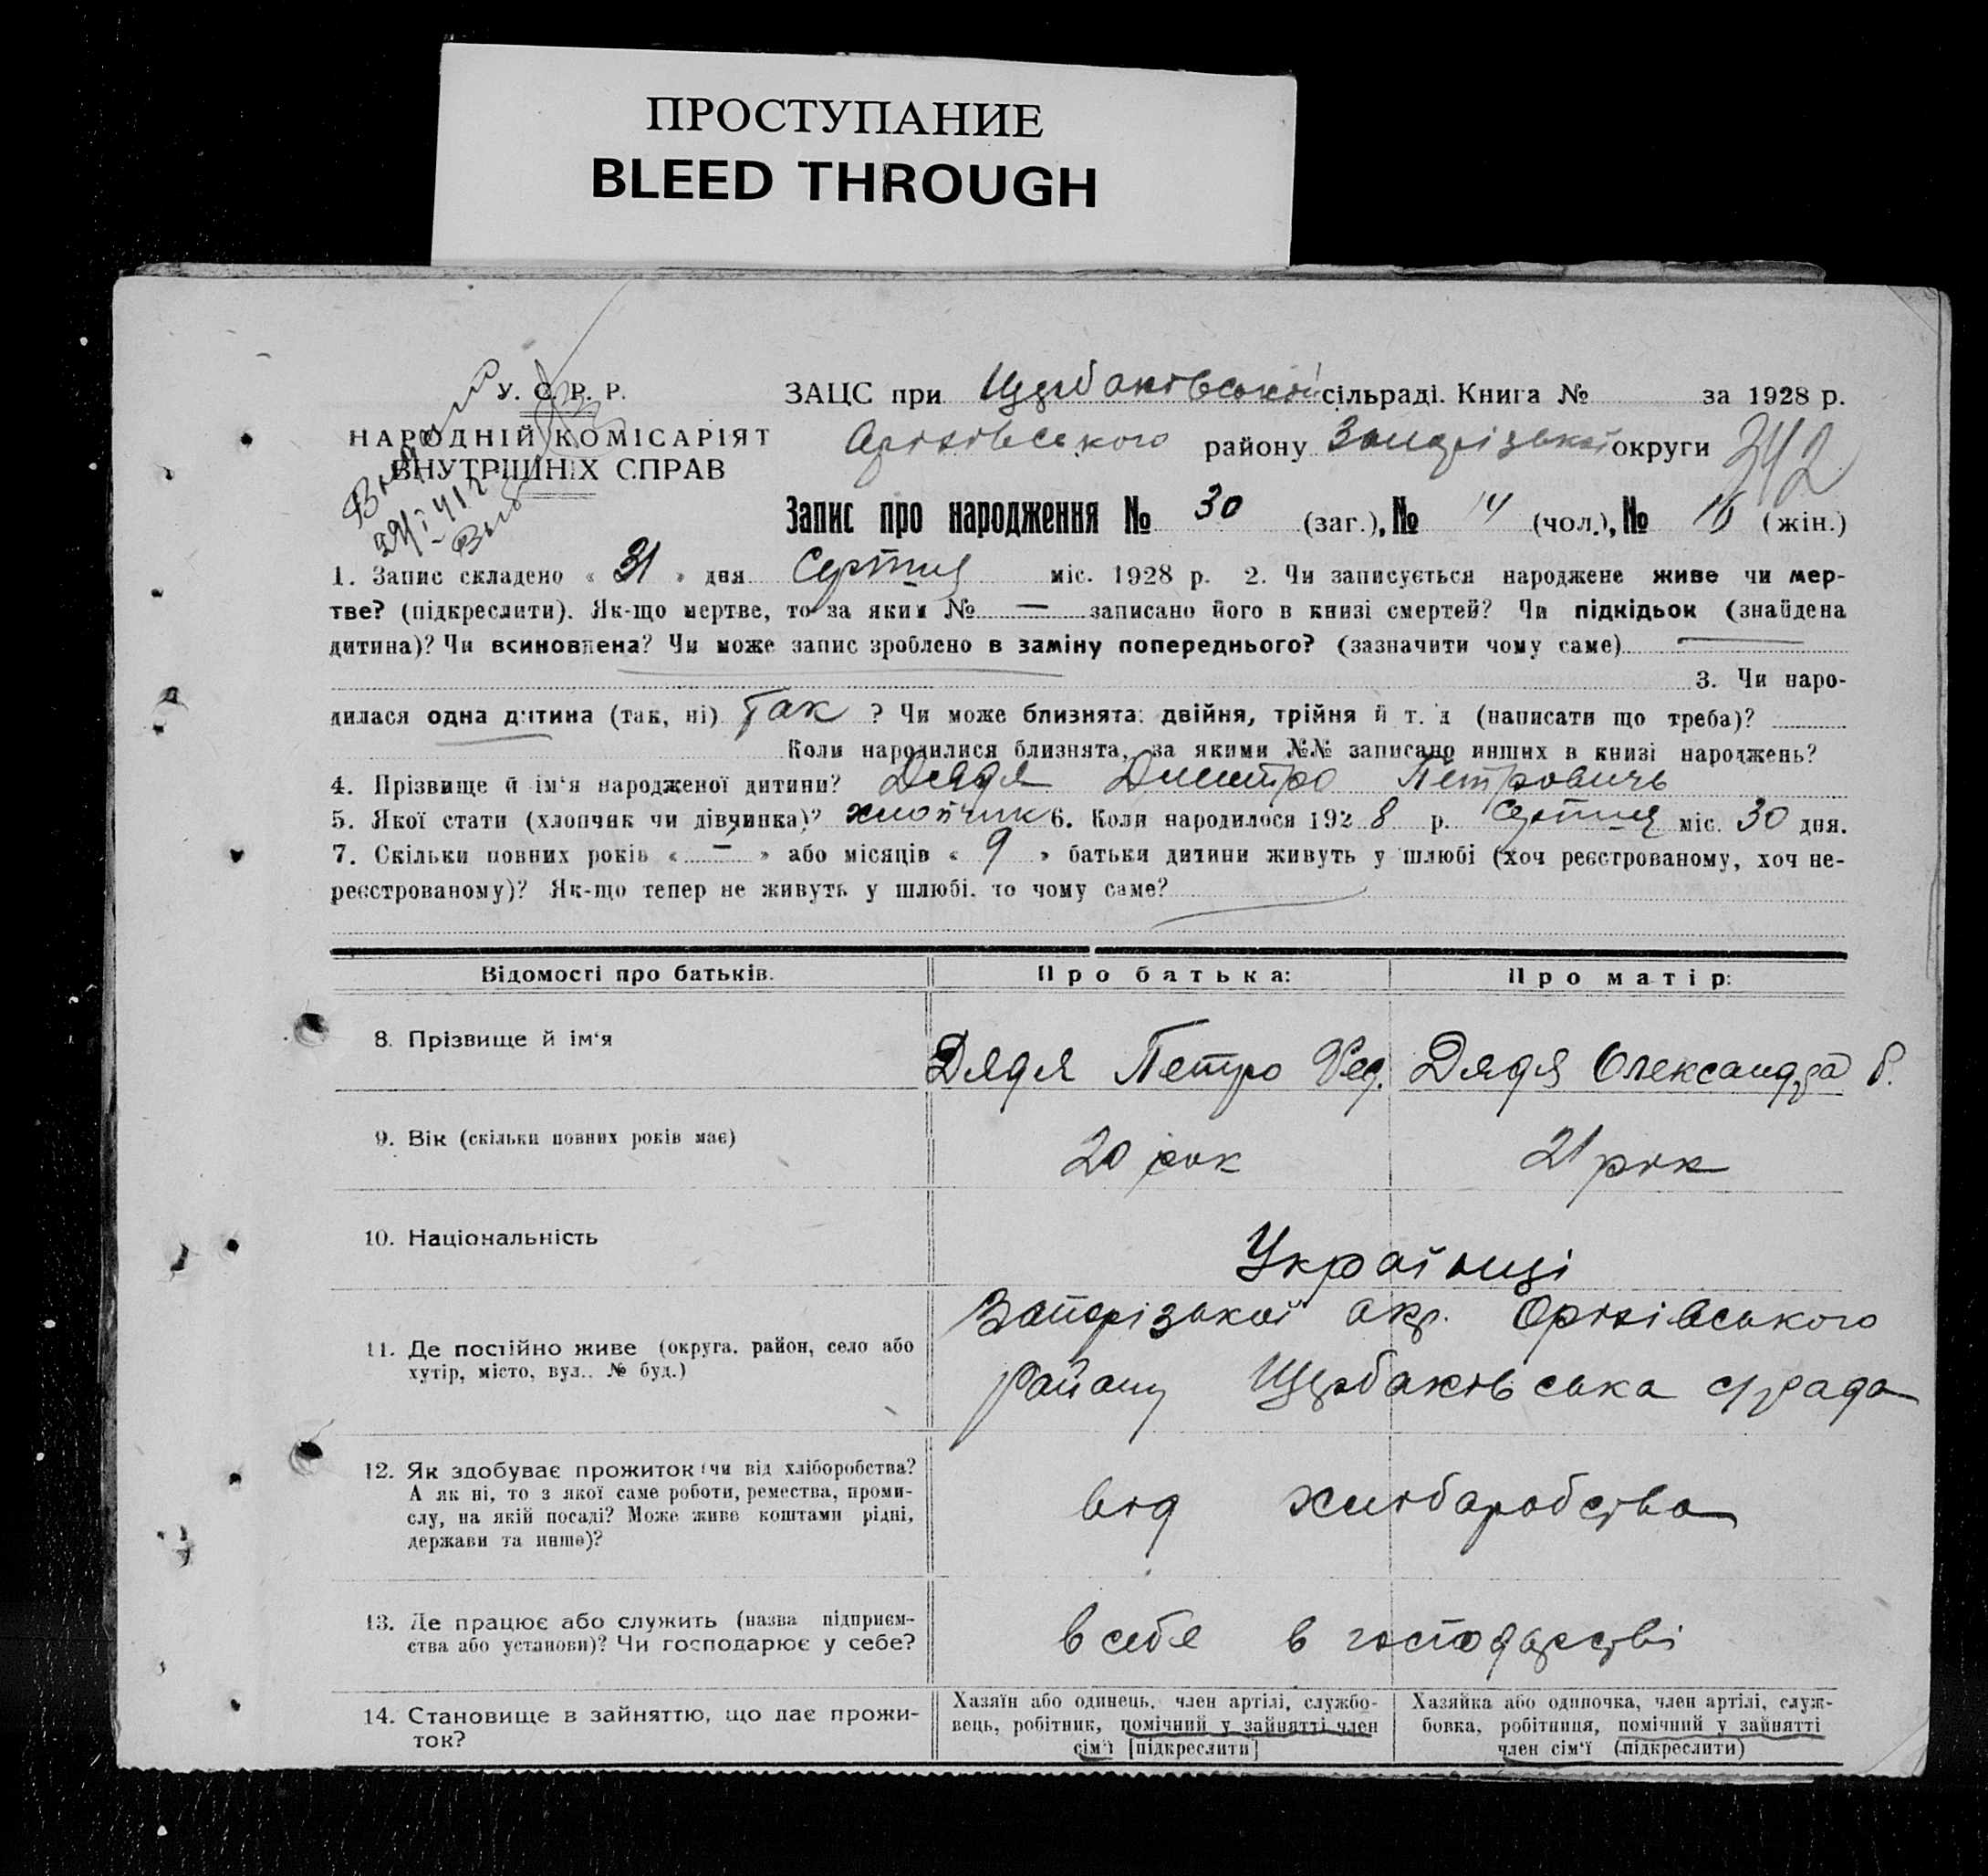 ПРОСТУПАНИЕ
BLEED THROUGH
У. С. Р. Р.
НАРОДНІЙ КОМІСАРІЯТ
ВНУТРІШНІХ СПРАВ
ЗАЦС при Щербаківській сільраді. Книга № за 1928 р.
Оріхівського району Запорізької округи 342
Запис про народження № 30 (заг.), № 14 (чол.), № 16 (жін.)
1. Запис складено « 31 » дня Серпня міс. 1928 р. 2. Чи записується народжене живе чи мер-
тве? (підкреслити). Як-що мертве, то за яким № — записано його в книзі смертей? Чи підкідьок (знайдена
дитина)? Чи всиновлена? Чи може запис зроблено в заміну попереднього? (зазначити чому саме) —
3. Чи наро-
дилася одна дитина (так, ні) Так ? Чи може близнята: двійня, трійня й т. д (написати що треба)?
Коли народилися близнята, за якими №№ записано инших в книзі народжень?
4. Прізвище й ім'я народженої дитини? Дядя Дмитро Петровичь
5. Якої статі (хлопчик чи дівчинка)? хлопчик 6. Коли народилося 1928 р. Серпня міс. 30 дня.
7. Скільки повних років « — » або місяців « 9 » батьки дитини живуть у шлюбі (хоч реєстрованому, хоч не-
реєстрованому)? Як-що тепер не живуть у шлюбі, то чому саме?
Відомості про батьків. Про батька: Про матір:
8. Прізвище й ім'я Дядя Петро Фед. Дядя Олександра
9. Вік (скільки повних років має) 20 рок 21 рок
10. Національність Українці
Запорізької окр. Оріхівського
11. Де постійно живе (округа, район, село або
хутір, місто, вул.. № буд.) району Щербаківська с/рада
12. Як здобуває прожиток (чи від хліборобства?
А як ні, то з якої саме роботи, ремества, проми-
слу, на якій посаді? Може живе коштами рідні,
держави та инше)? від хліборобства
13. Де працює або служить (назва підприєм-
ства або установи)? Чи господарює у себе? в себе в господарстві
14. Становище в зайняттю, що дає прожи-
ток?
Хазяїн або одинець, член артілі, службо-
вець, робітник, помічний у зайнятті член
сім'ї [підкреслити]
Хазяйка або одиночка, член артілі, служ-
бовка, робітниця, помічний у зайнятті
член сім'ї (підкреслити)